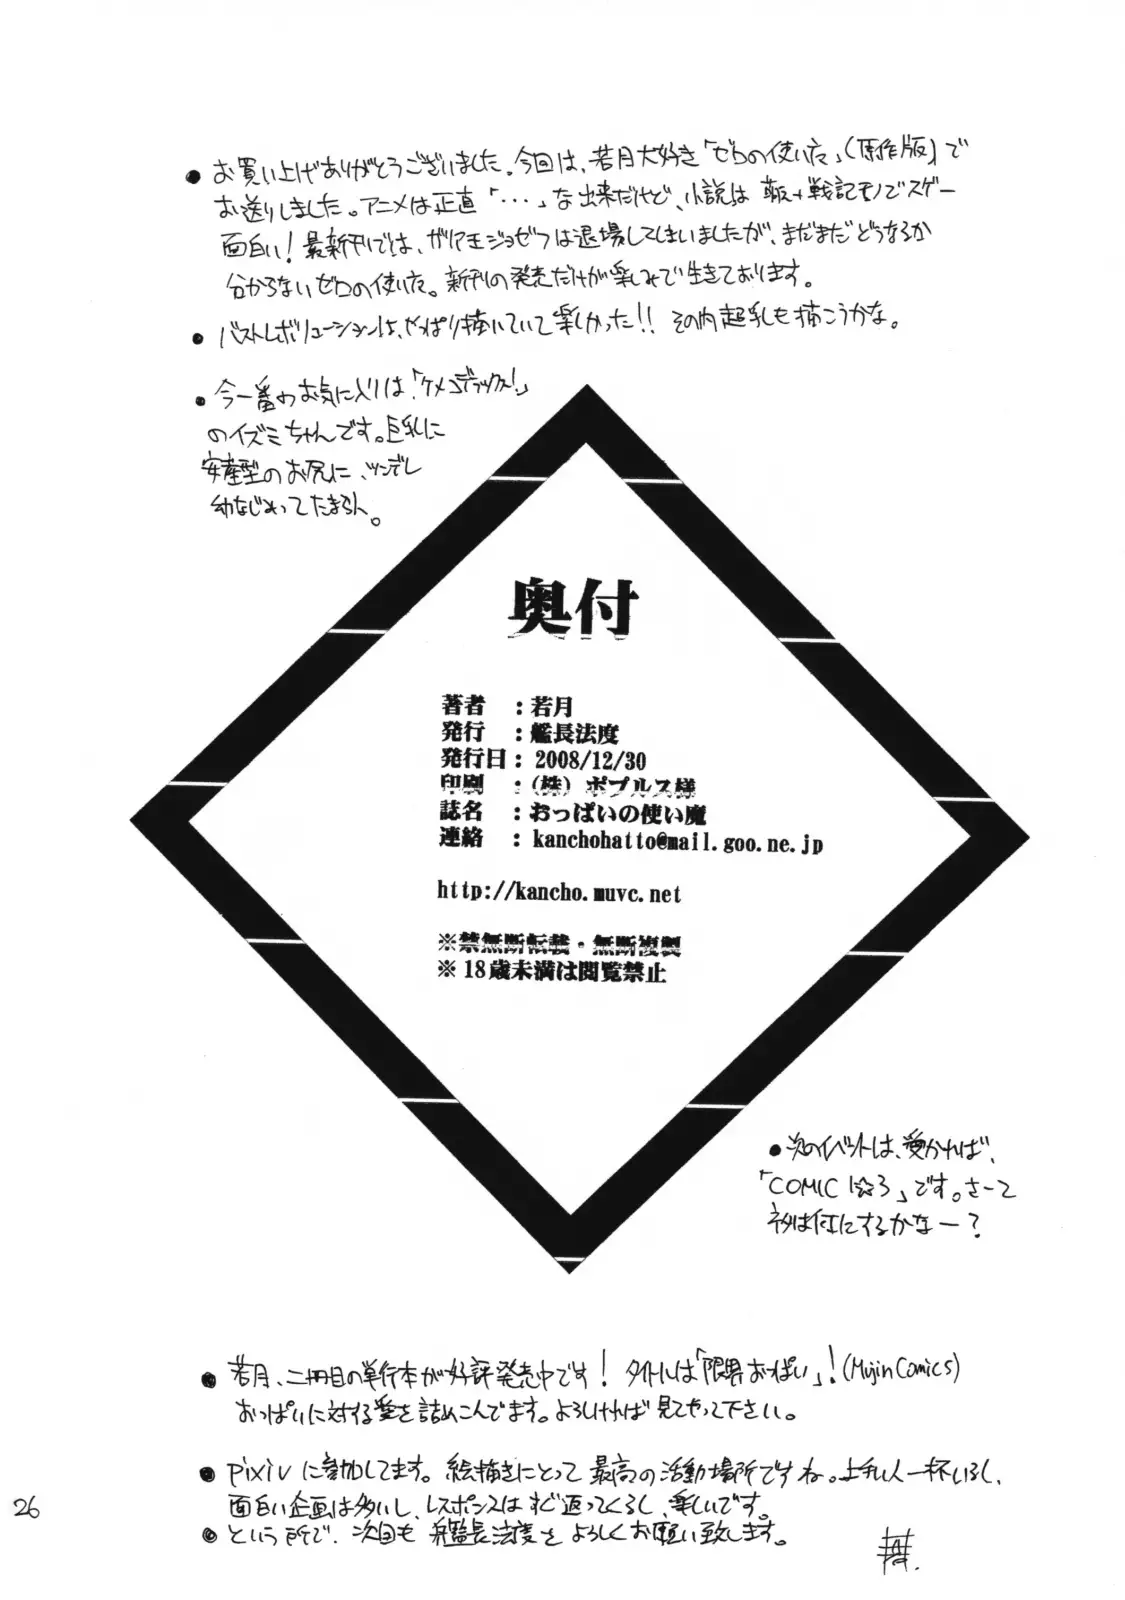 ●お買い上げありがとうございました。今回は、若月大好き「ゼロの使い魔」(原作版)で
お送りしました。アニメは正直「・・・」な出来だけど、小説は 萌え+戦記モノでスゲー
面白い!最新刊では、ガリア王ジョゼフは退場してしまいましたが、まだまだどうなるか
分からないゼロの使い魔。新刊の発売だけが楽しみで生きております。
●バストレボリューションは、やっぱり描いていて楽しかった!! その内超乳も描こうかな。
●今一番のお気に入りは「ケメコデラックス!」
のイズミちゃんです。巨乳に
安産型のお尻に、ツンデレ
幼なじみってたまらん。
奥付
著者 :若月
発行 :艦長法度
発行日:2008/12/30
印刷 :(株)ポプルス様
誌名 :おっぱいの使い魔
連絡 :kanchohatto@mail.goo.ne.jp
http://kancho.muvc.net
※禁無断転載・無断複製
※18歳未満は閲覧禁止
●次のイベントは、受かれば、
「COMIC1☆3」です。さーて
ネタは何にするかなー?
●若月、二冊目の単行本が好評発売中です! タイトルは「限界おっぱい」!(Mujin Comics)
おっぱいに対する愛を詰めこんでます。よろしければ見てやって下さい。
●pixivに参加してます。絵描きにとって最高の活動場所ですね。上手い人一杯いるし、
面白い企画は多いし、レスポンスはすぐ返ってくるし、楽しいです。
●という所で、次回も 艦長法度をよろしくお願い致します。
26